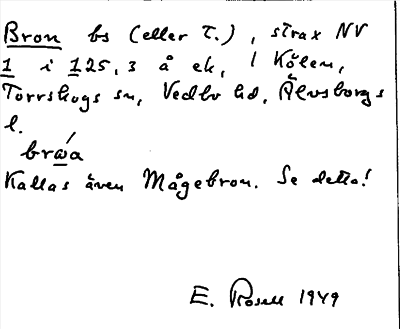 Bron bs (eller T.), strax NV
1 i 125, 3 å ek, i Kölen,
Torrskogs sn, Vedbo hd, Älvsborgs
l.
brωa
Kallas även Mågebron. Se detta!
E. Rosell 1949